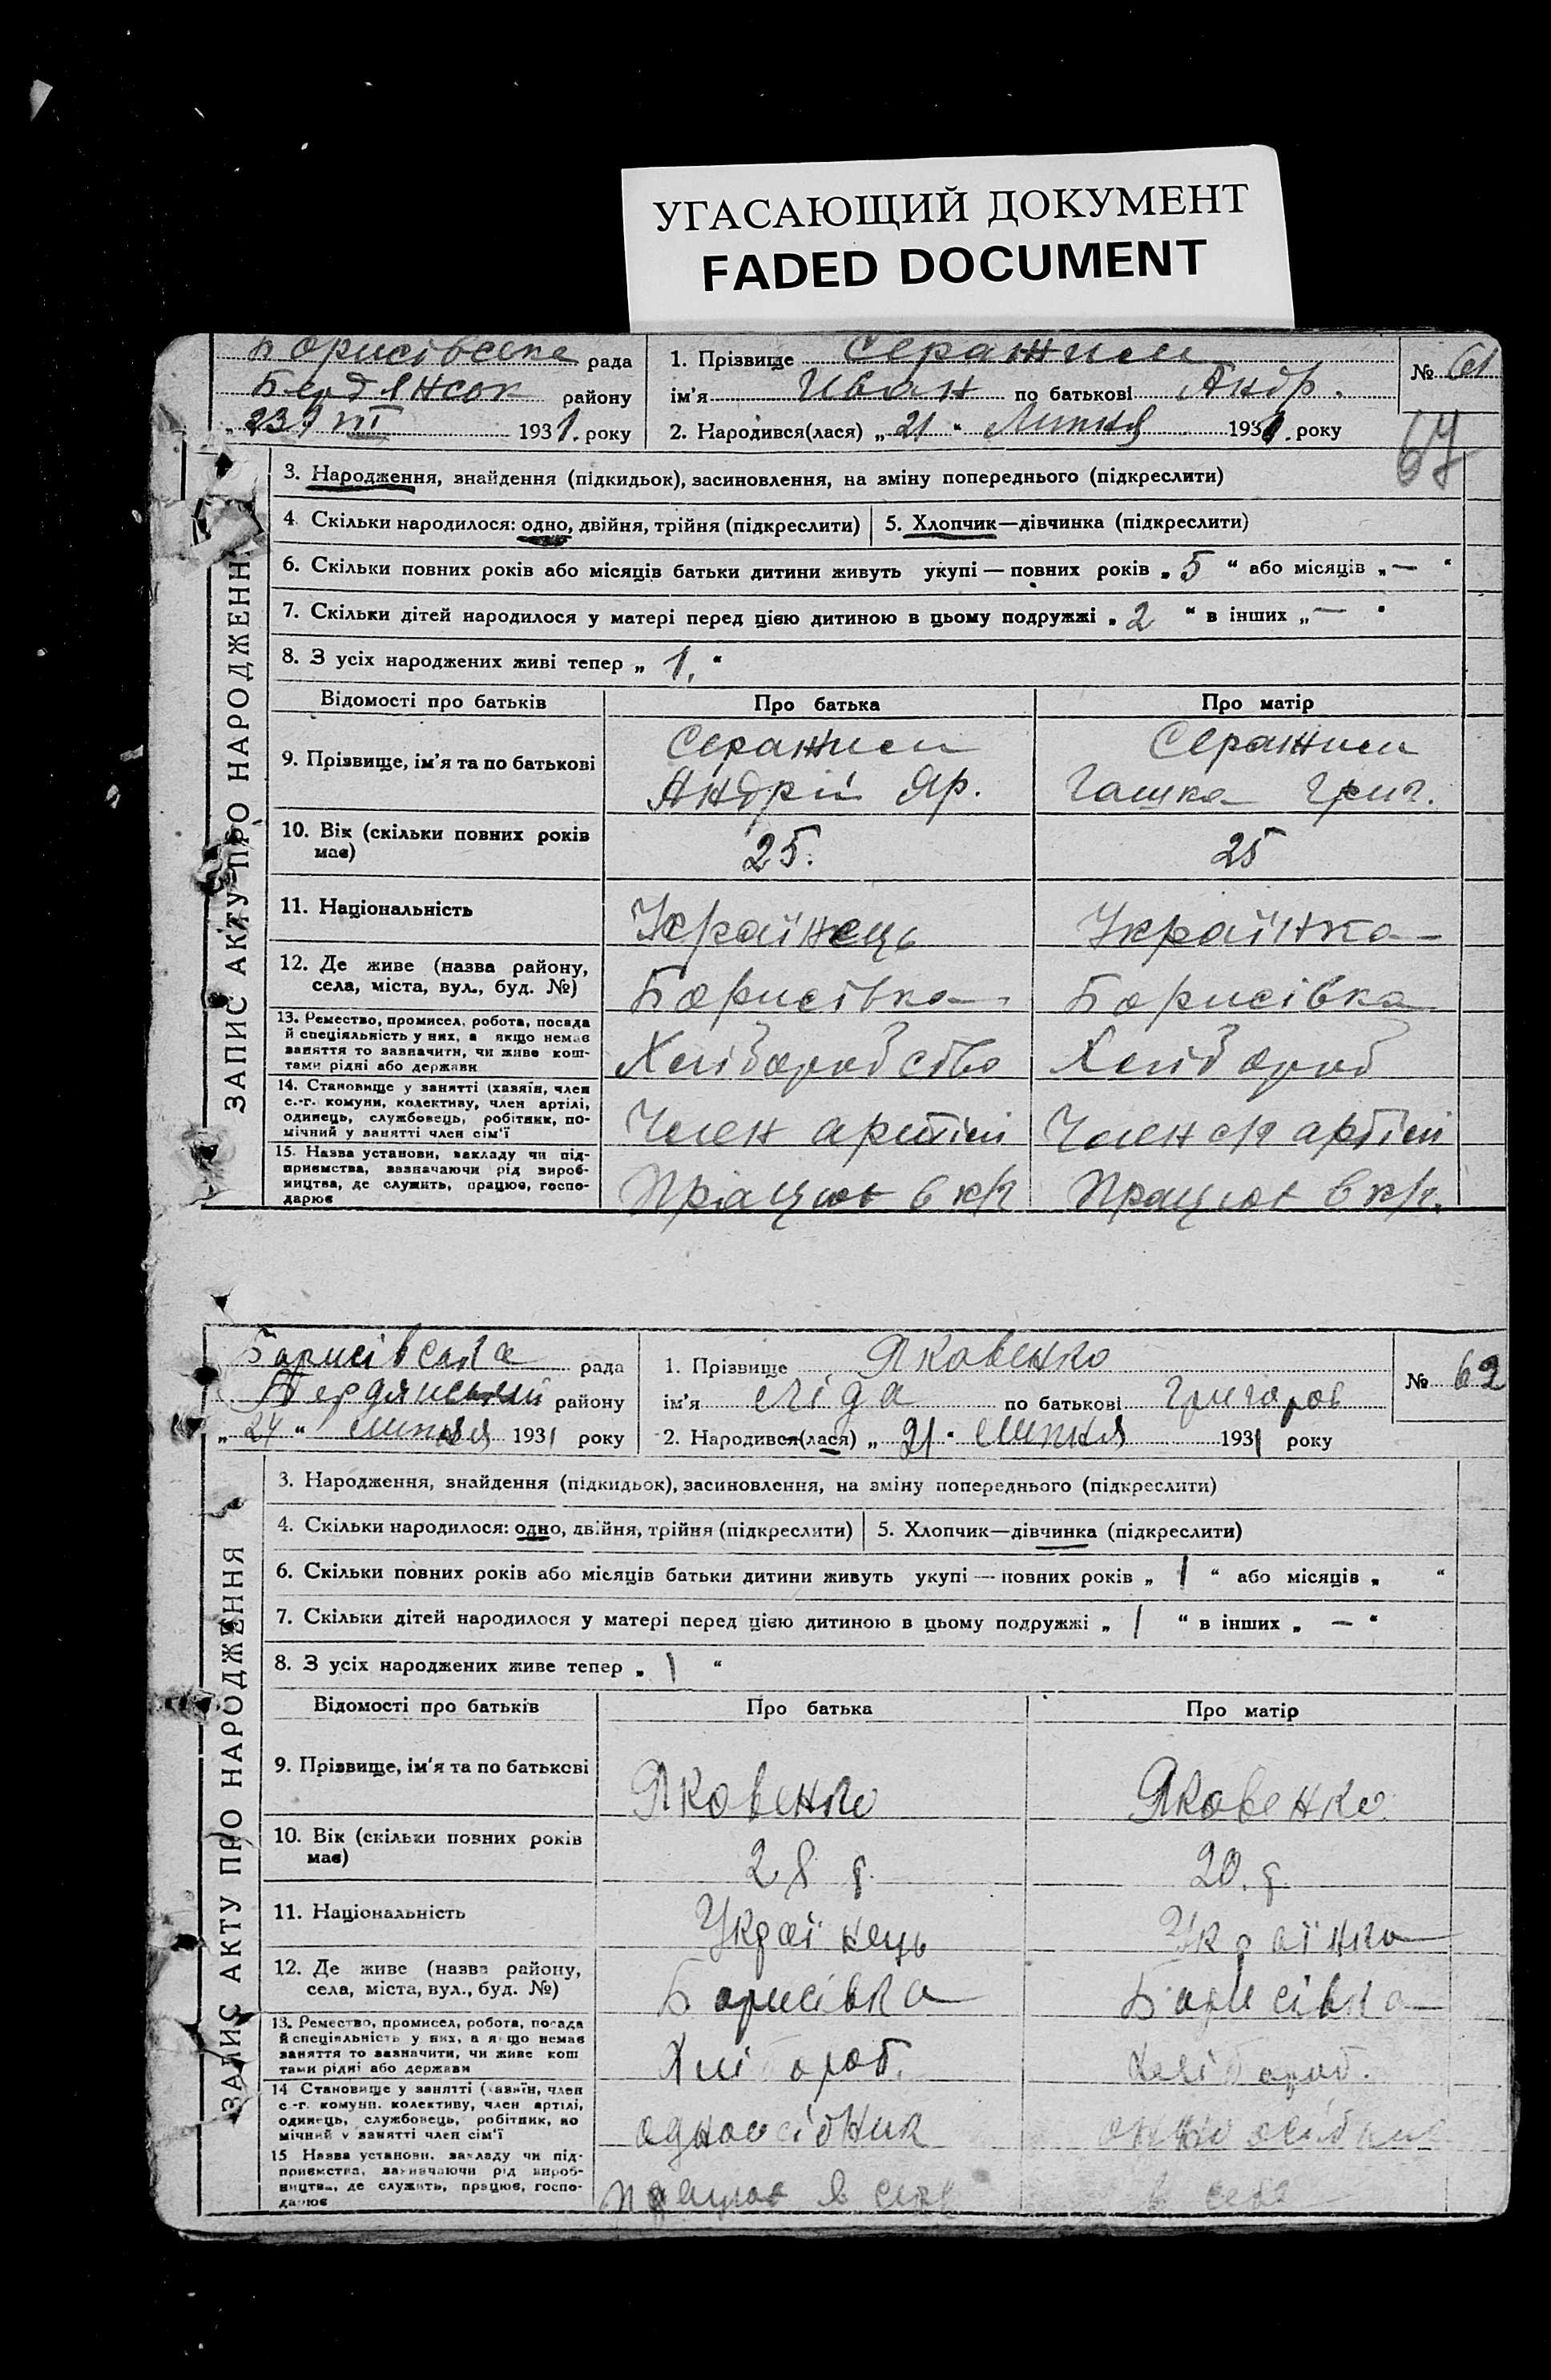 УГАСАЮЩИЙ ДОКУМЕНТ
FADED DOCUMENT
Борисівська рада
Бердянськ району
„23/VII 1931. року
1. Прізвище
ім'я Иван по батькові Андр.
2. Народився(лася) „21“ Липня 1931. року
№ 61
ЗАПИС АКТУ ПРО НАРОДЖЕНН
3. Народження, знайдення (підкидьок), засиновлення, на зміну попереднього (підкреслити)
4 Скільки народилося: одно, двійня, трійня (підкреслити) 5. Хлопчик—дівчинка (підкреслити)
6. Скільки повних років або місяців батьки дитини живуть укупі — повних років „5“ або місяців „—“
7. Скільки дітей народилося у матері перед цією дитиною в цьому подружжі „2“ в інших „—“
8. З усіх народжених живі тепер „1.“
Відомості про батьків Про батька Про матір
9. Прізвище, ім'я та по батькові
Андрій Яр. Гашка Григ.
10. Вік (скільки повних років має) 25. 25
11. Національність Українець Українка
12. Де живе (назва району, села, міста, вул., буд. №) Борисівка Борисівка
13. Ремество, промисел, робота, посада
й спеціяльність у них, а якщо немає
заняття то зазначити, чи живе кош-
тами рідні або держави Хліборобство Хлібороб
14. Становище у занятті (хазяїн, член
с.-г. комуни, колективу, член артілі,
одинець, службовець, робітник, по-
мічний у занятті член сім'ї Член артіли Член с/г артіли
15. Назва установи, закладу чи під-
приємства, зазначаючи рід вироб-
ництва, де служить, працює, госпо-
дарює Працює в к/г Працює в к/г.
Борисівська рада
Бердянський району
„24“ липня 1931 року
1. Прізвище Яковенко
ім'я Ліда по батькові Григоров
2. Народився(лася) „21“ липня 1931 року
№ 62
ЗАПИС АКТУ ПРО НАРОДЖЕННЯ
3. Народження, знайдення (підкидьок), засиновлення, на зміну попереднього (підкреслити)
4. Скільки народилося: одно, двійня, трійня (підкреслити) 5. Хлопчик—дівчинка (підкреслити)
6. Скільки повних років або місяців батьки дитини живуть укупі — повних років „1“ або місяців „ “
7. Скільки дітей народилося у матері перед цією дитиною в цьому подружжі „1“ в інших „—“
8. З усіх народжених живе тепер „1“
Відомості про батьків Про батька Про матір
9. Прізвище, ім'я та по батькові Яковенко Яковенко
10. Вік (скільки повних років має) 28 р. 20. р.
11. Національність Українець Українка
12. Де живе (назва району, села, міста, вул., буд. №) Борисівка Борисівка
13. Ремество, промисел, робота, посада
й спеціяльність у них, а якщо немає
заняття то зазначити, чи живе кош
тами рідні або держави Хлібороб. Хлібороб.
14 Становище у занятті (хазяїн, член
с.-г. комуни. колективу, член артілі,
одинець, службовець, робітник, по
мічний у занятті член сім'ї одноосібник
15 Назва установи, закладу чи під-
приємства, зазначаючи рід вироб-
ництва, де служить, працює, госпо-
дарює Працює в себе в себе